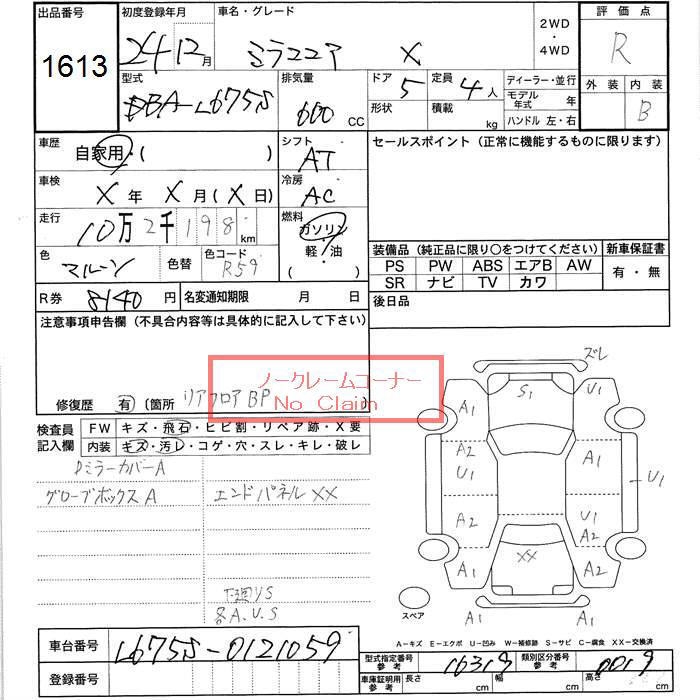 出品番号 初度登録年月 車名・グレード 2WD ・ 4WD 評価点
1613 24 12月 ミラココア X R
型式 排気量 ドア 定員 ディーラー・並行 外装 内装
DBA-L675S 660 CC 5 4人 モデル年式 年 B
形状 積載 kg ハンドル 左・右
車歴 シフト セールスポイント (正常に機能するものに限ります)
自家用・( ) AT
車検 冷房
X年 X月(X日) AC
走行 燃料
10万2千198km ガソリン
色 色替 色コード 軽/油
マルーン R59 ( )
装備品 (純正品に限り○をつけてください) 新車保証書
PS PW ABS エアB AW 有・無
SR ナビ TV カワ
R券 8140円 名変通知期限 月 日 後日品
注意事項申告欄 (不具合内容等は具体的に記入して下さい)
ノークレームコーナー
No Claim
修復歴 有 〔箇所 リアフロア BP
検査員 FW キズ・飛石・ヒビ割・リペア跡・X要
記入欄 内装 キズ・汚レ・コゲ・穴・スレ・キレ・破レ
DミラーカバーA
グローブボックスA エンドパネルXX
下廻りS
各A.U.S
ズレ
A1 S1 U1
A2 A1
U1 U1
U1
A2 A2
XX
A1 A2
A1
スペア
A-キズ E-エクボ U-凹み W-補修跡 S-サビ C-腐食 XX-交換済
車台番号 L675S-0121059
型式指定番号 参考 16319 類別区分番号 参考 0019
登録番号 車庫証明用 参考 長さ cm 幅 cm 高さ cm